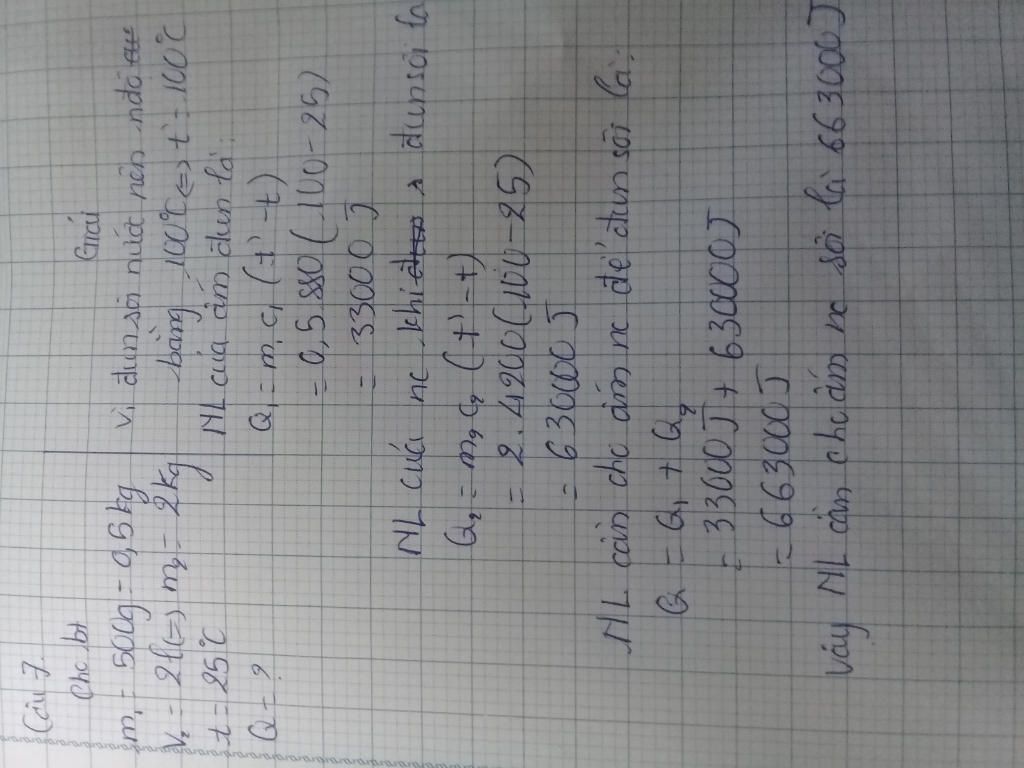 Câu 7
Cho bt
m₁ = 500g = 0,5kg
V₂ = 2l (=) m₂ = 2kg
t = 25°C
Q = ?
Giải
Vì đun sôi nước nên nđộ
bằng 100°C <=> t' = 100°C
NL của ấm đun là:
Q₁ = m₁ c₁ (t' - t)
= 0,5.880 (100 - 25)
= 33000 J
NL của nc khi đun sôi là
Q₂ = m₂ c₂ (t' - t)
= 2.4200 (100 - 25)
= 630000 J
NL cần cho ấm nc để đun sôi là:
Q = Q₁ + Q₂
= 33000J + 630000J
= 663000J
Vậy NL cần cho ấm nc sôi là 663000J